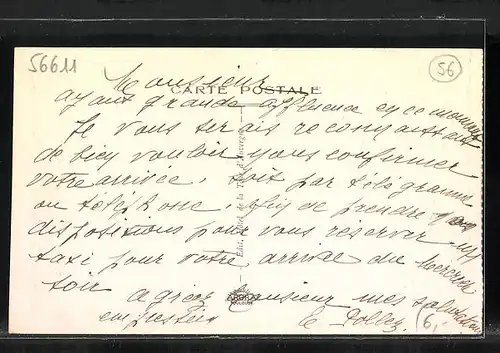 56611
56
Monsieur
CARTE POSTALE
ayant grande affluence en ce moment
Je vous serais reconnaissant
de bien vouloir nous confirmer
votre arrivée, soit par télégramme
ou téléphone, afin de prendre nos
dispositions pour vous réserver un
taxi pour votre arrivée du mercredi
soir
agréez Monsieur mes salutations
empressées
6,-